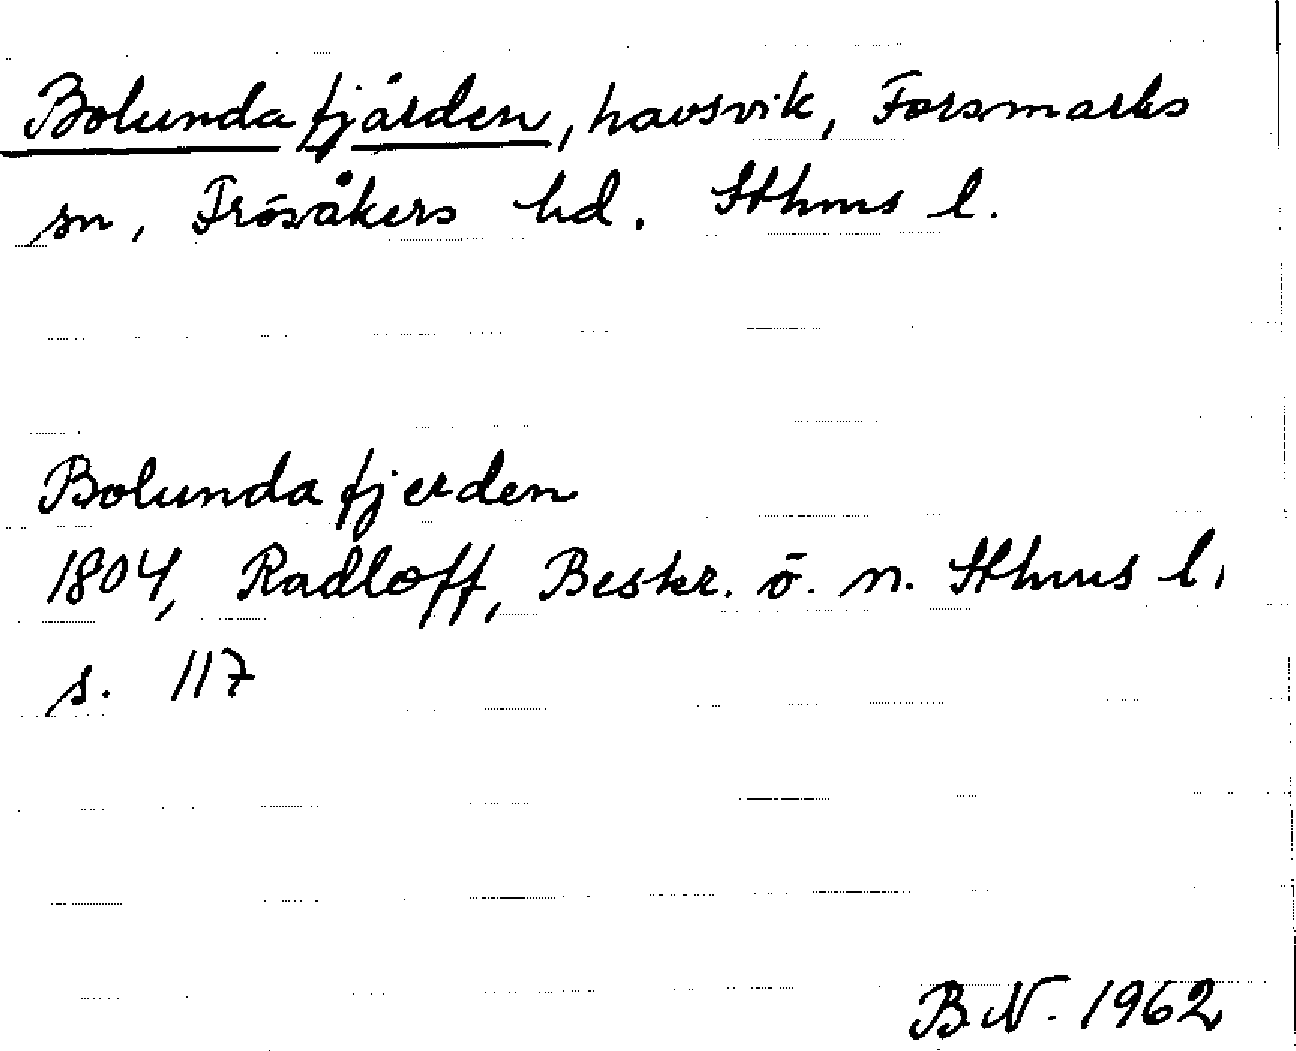 Bolundafjärden, havsvik, Forsmarks
sn, Frösåkers hd. Sthms l.
Bolundafjerden
1804, Radloff, Beskr. ö. n. Sthms l.
s. 117
B.N. 1962